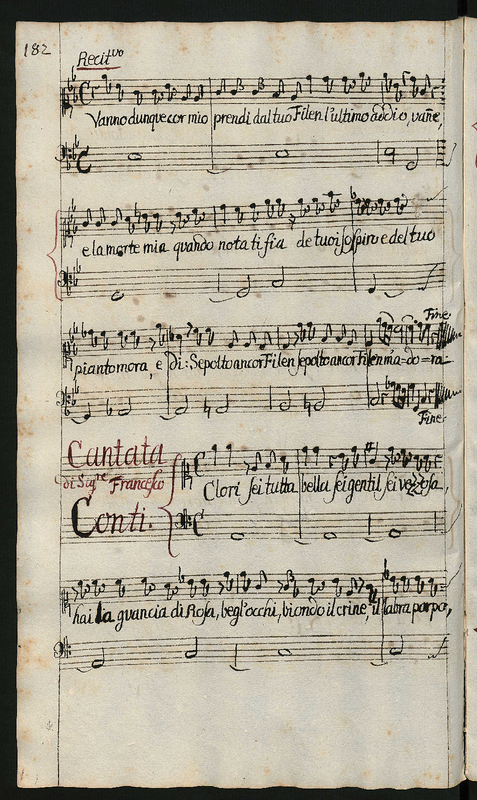 182
Recit.vo
Vanno dunque cor mio prendi dal tuo Filen l'ultimo addio, vañe,
e la morte mia quando nota ti fia de tuoi sospiri e del tuo
Fine
pianto mora, e di: Sepolto ancor Filen sepolto ancor Filen m'a=do=ra
Fine
Cantata
di Sig.re Francesco
Conti.
Clori sei tutta bella sei gentil sei vezzosa,
hai la guancia di Rosa, begl'occhi, biondo il crine, il labra porpo,